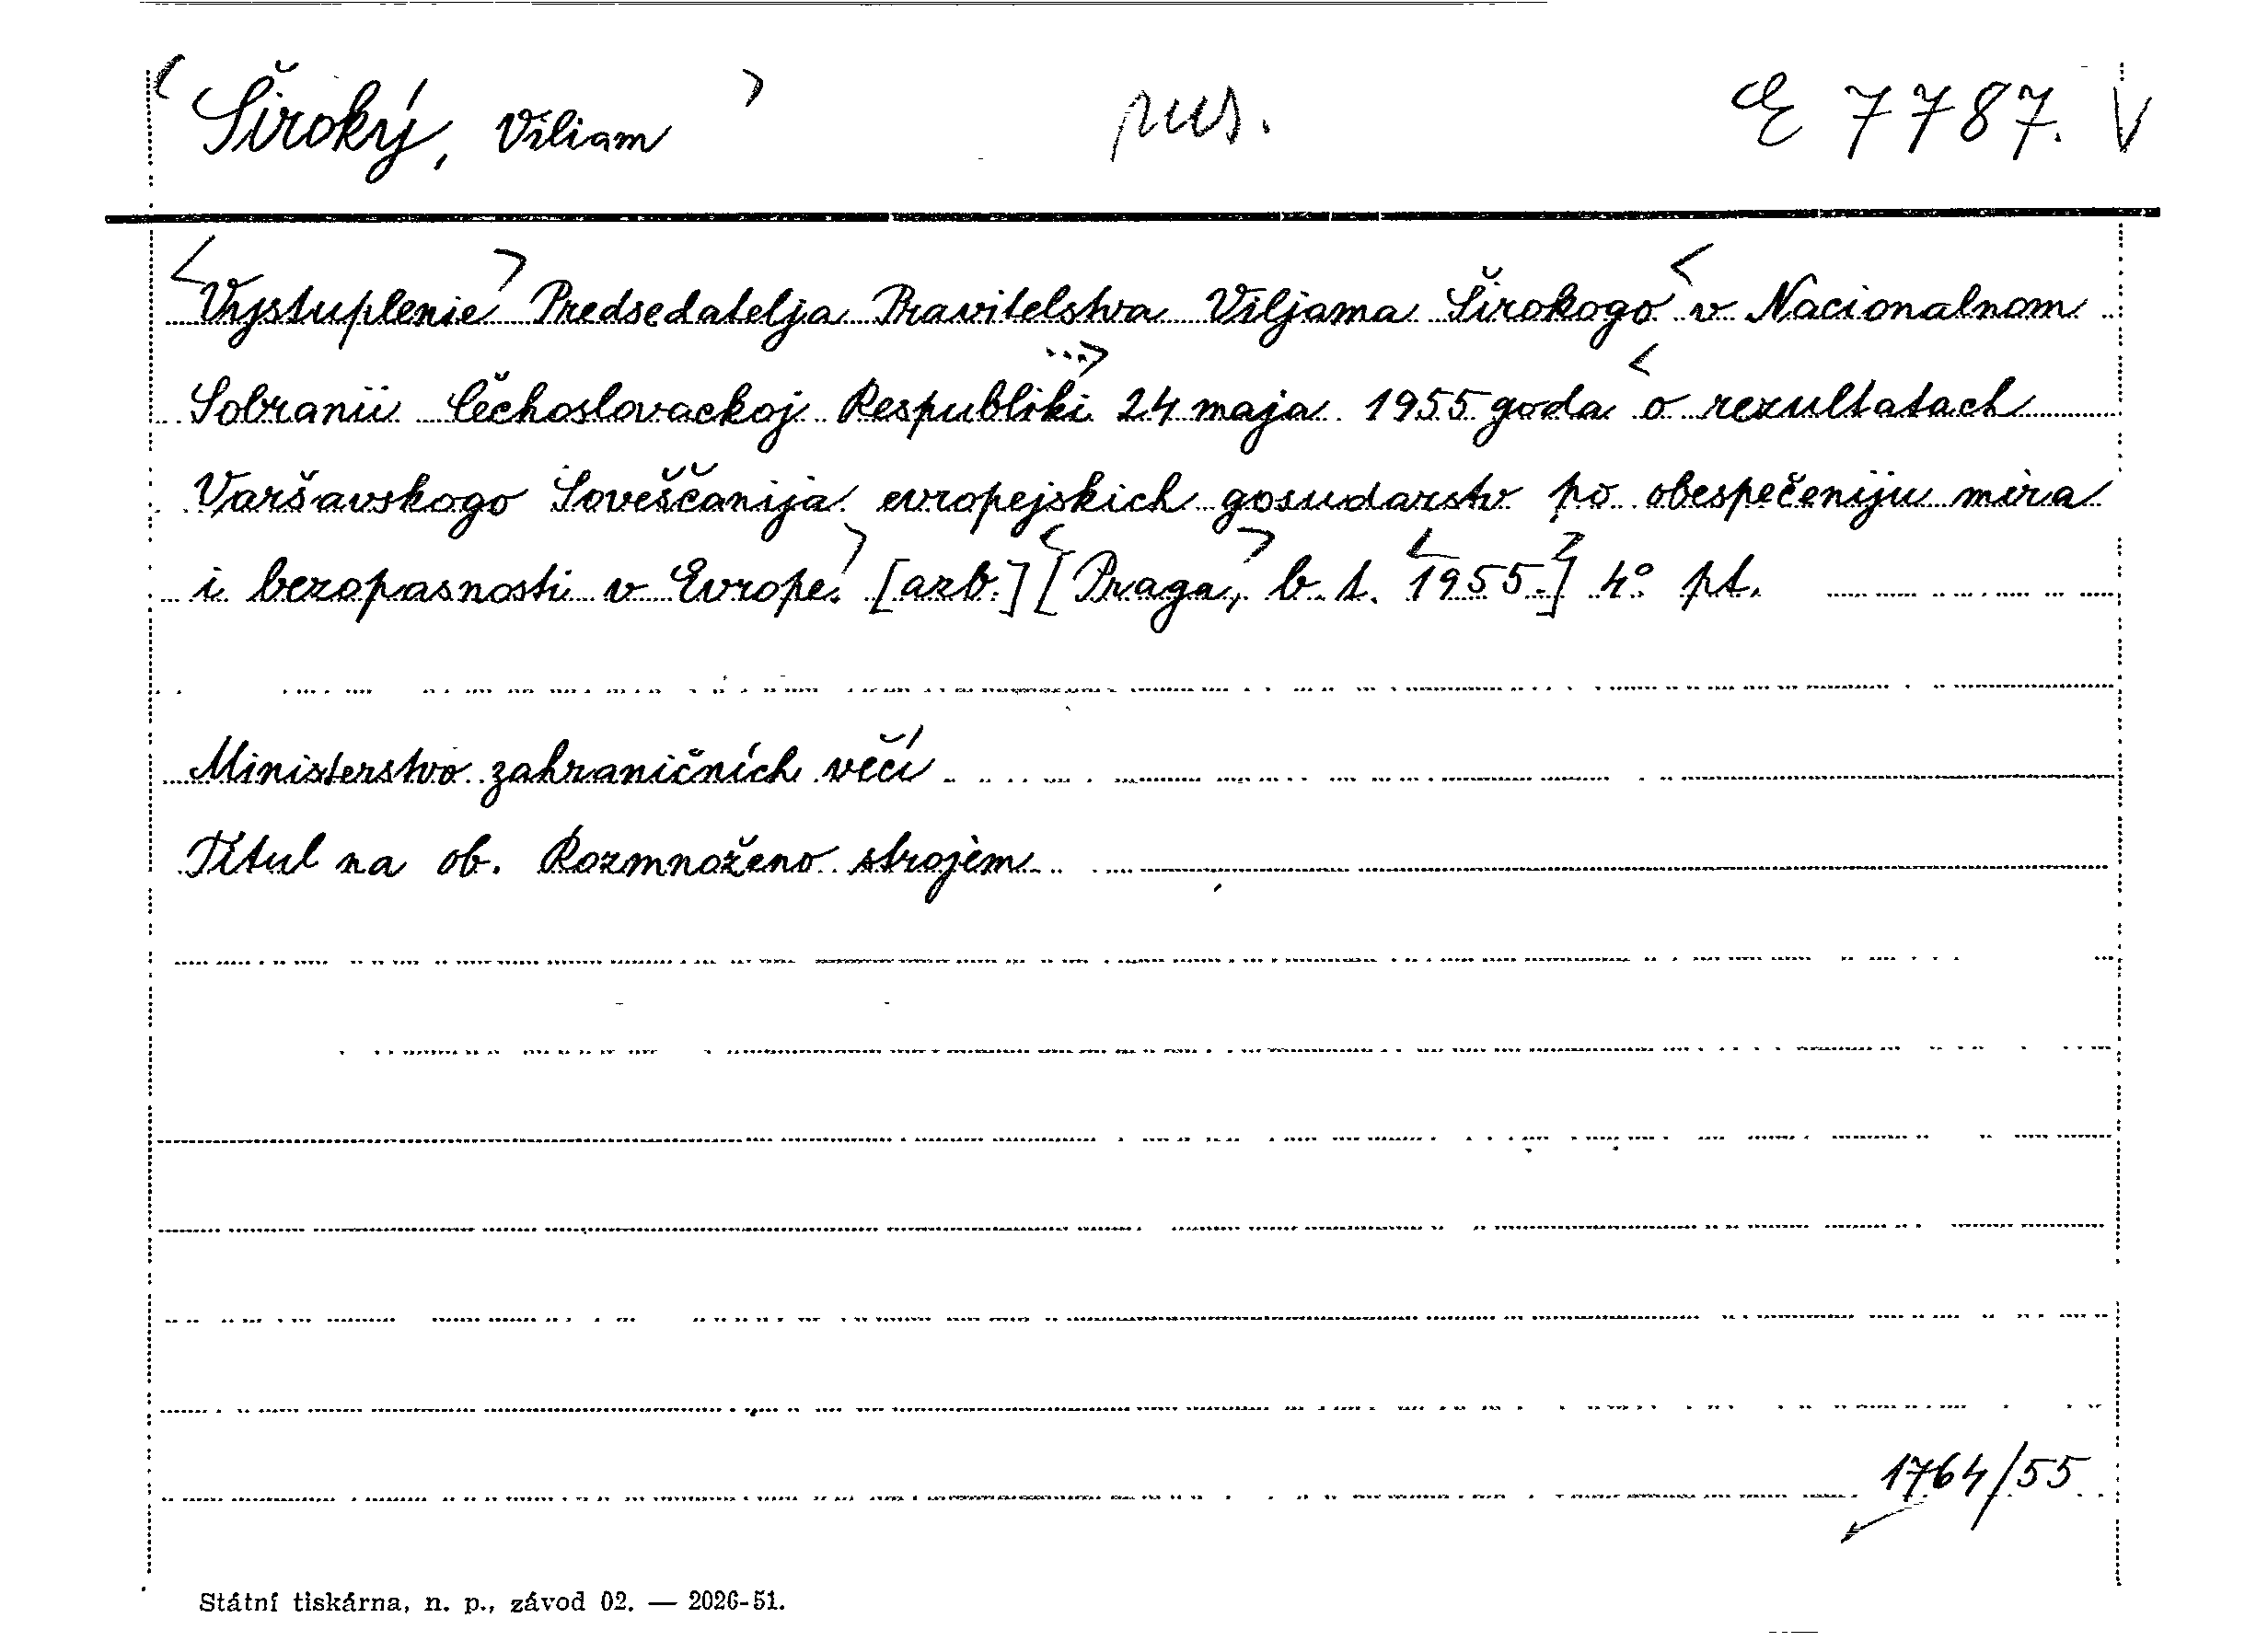 Široký, Viliam rus. E 7787. V
Vystuplenie Predsedatelja Pravitelstva Viljama Širokogo v Nacionalnom
Sobranii Čechoslovackoj Respubliki ... 24 maja 1955 goda o rezultatach
Varšavskogo Soveščanija evropejskich gosudarstv po obespečeniju mira
i bezopasnosti v Evrope. [azb.] [Praga, b. t. 1955.] 4° pt.
Ministerstvo zahraničních věcí
Titul na ob. Rozmnoženo strojem
1764/55
Státní tiskárna, n. p., závod 02. — 2026-51.